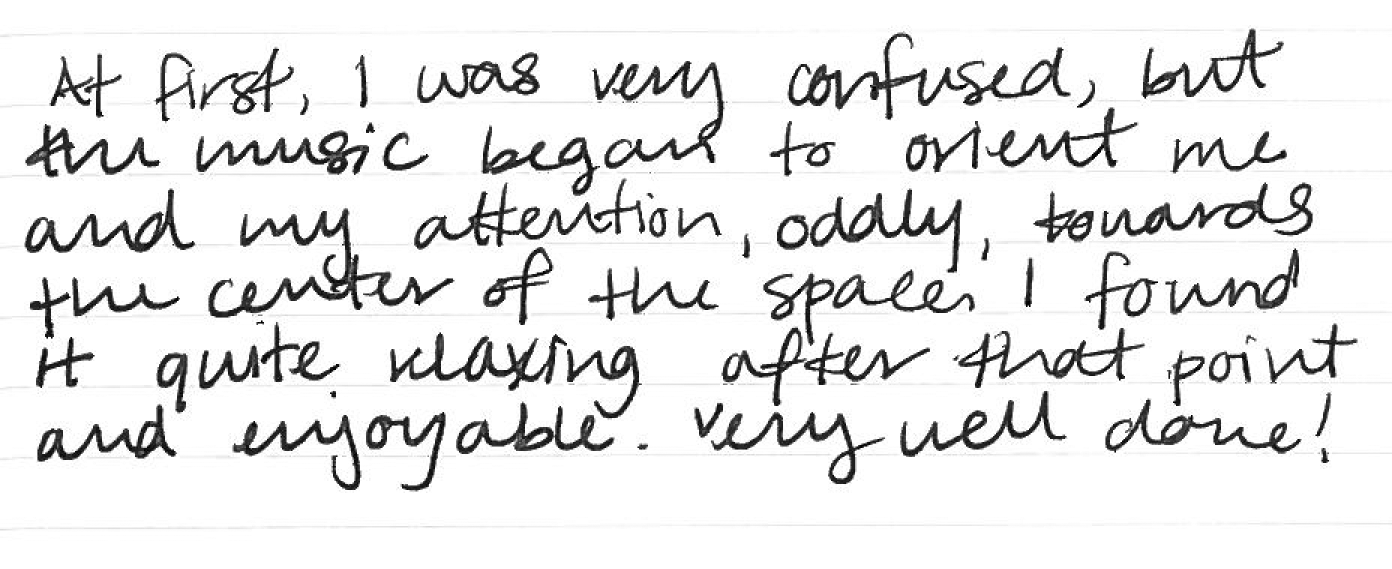 At first, I was very confused, but
the music began to orient me
and my attention, oddly, towards
the center of the space. I found
it quite relaxing after that point
and enjoyable. Very well done!